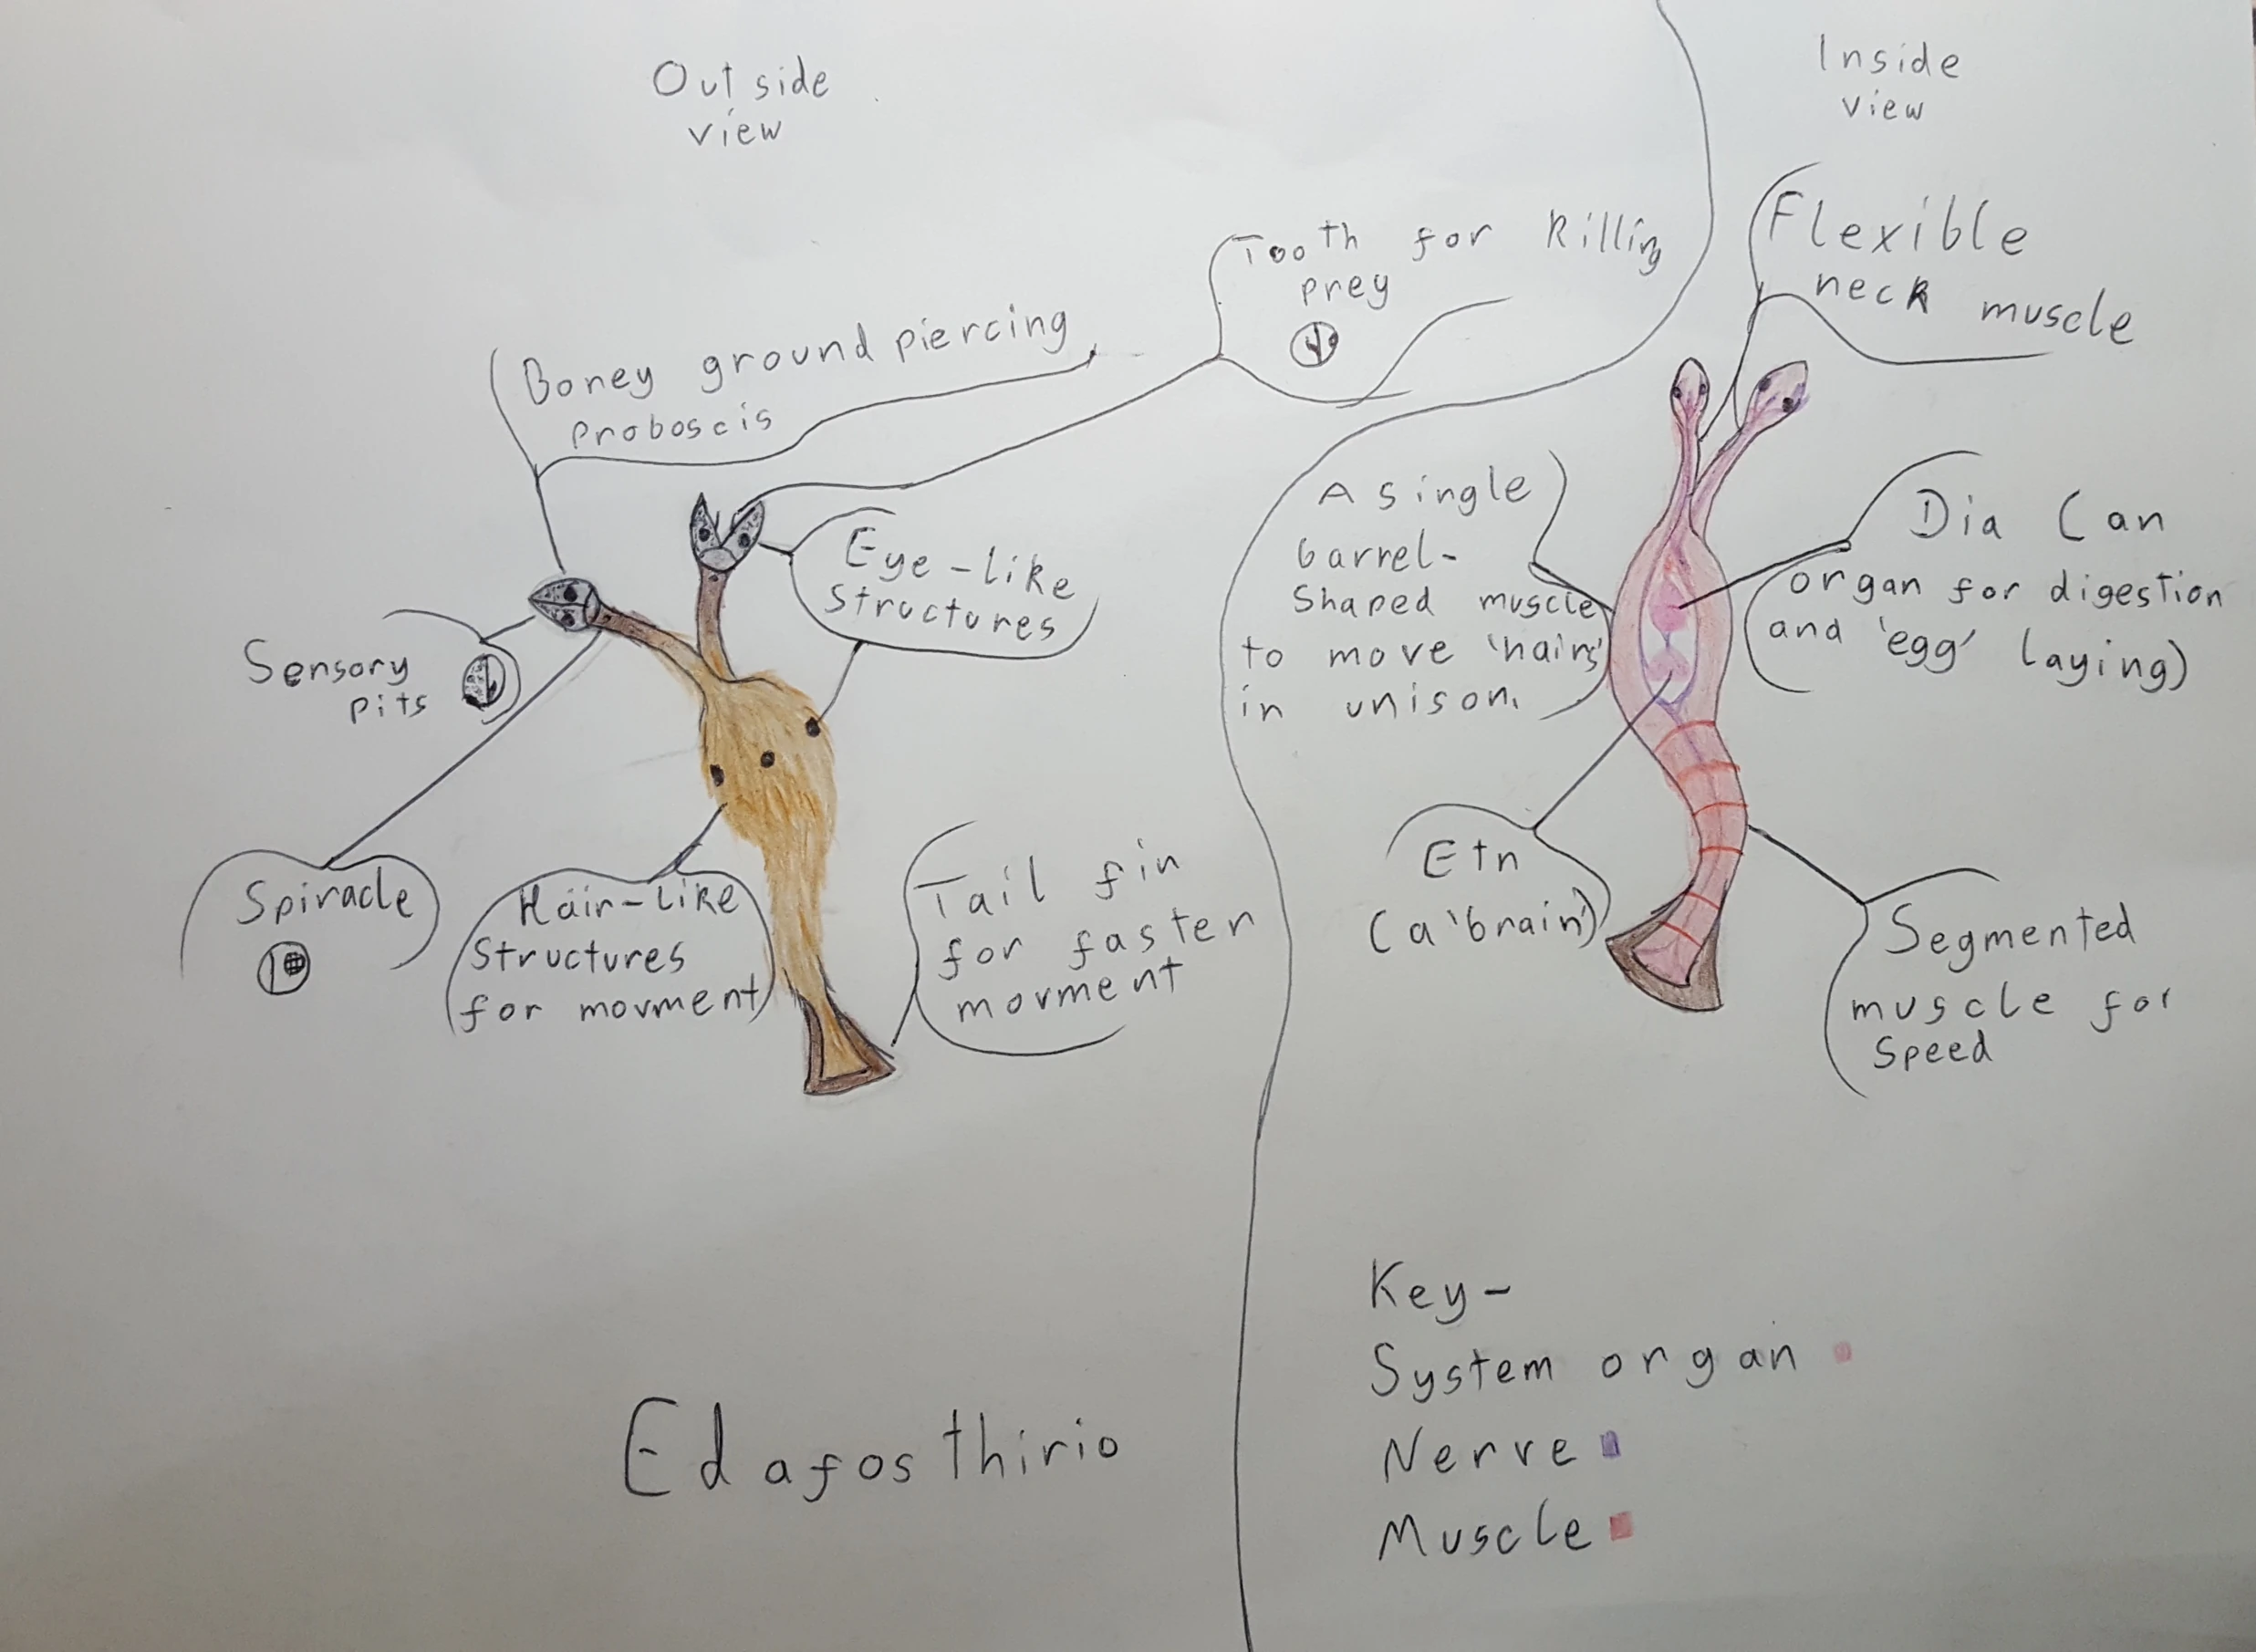 Outside
view
Inside
view
Tooth for killing
prey
Flexible
neck muscle
Boney ground piercing
proboscis
Eye-like
structures
Sensory
pits
Spiracle
Hair-like
structures
for movment
Tail fin
for faster
movment
A single
barrel-
shaped muscle
to move 'hairs'
in unison.
Dia (an
organ for digestion
and 'egg' laying)
Etn
(a 'brain')
Segmented
muscle for
speed
Edafosthirio
Key-
System organ
Nerve
Muscle